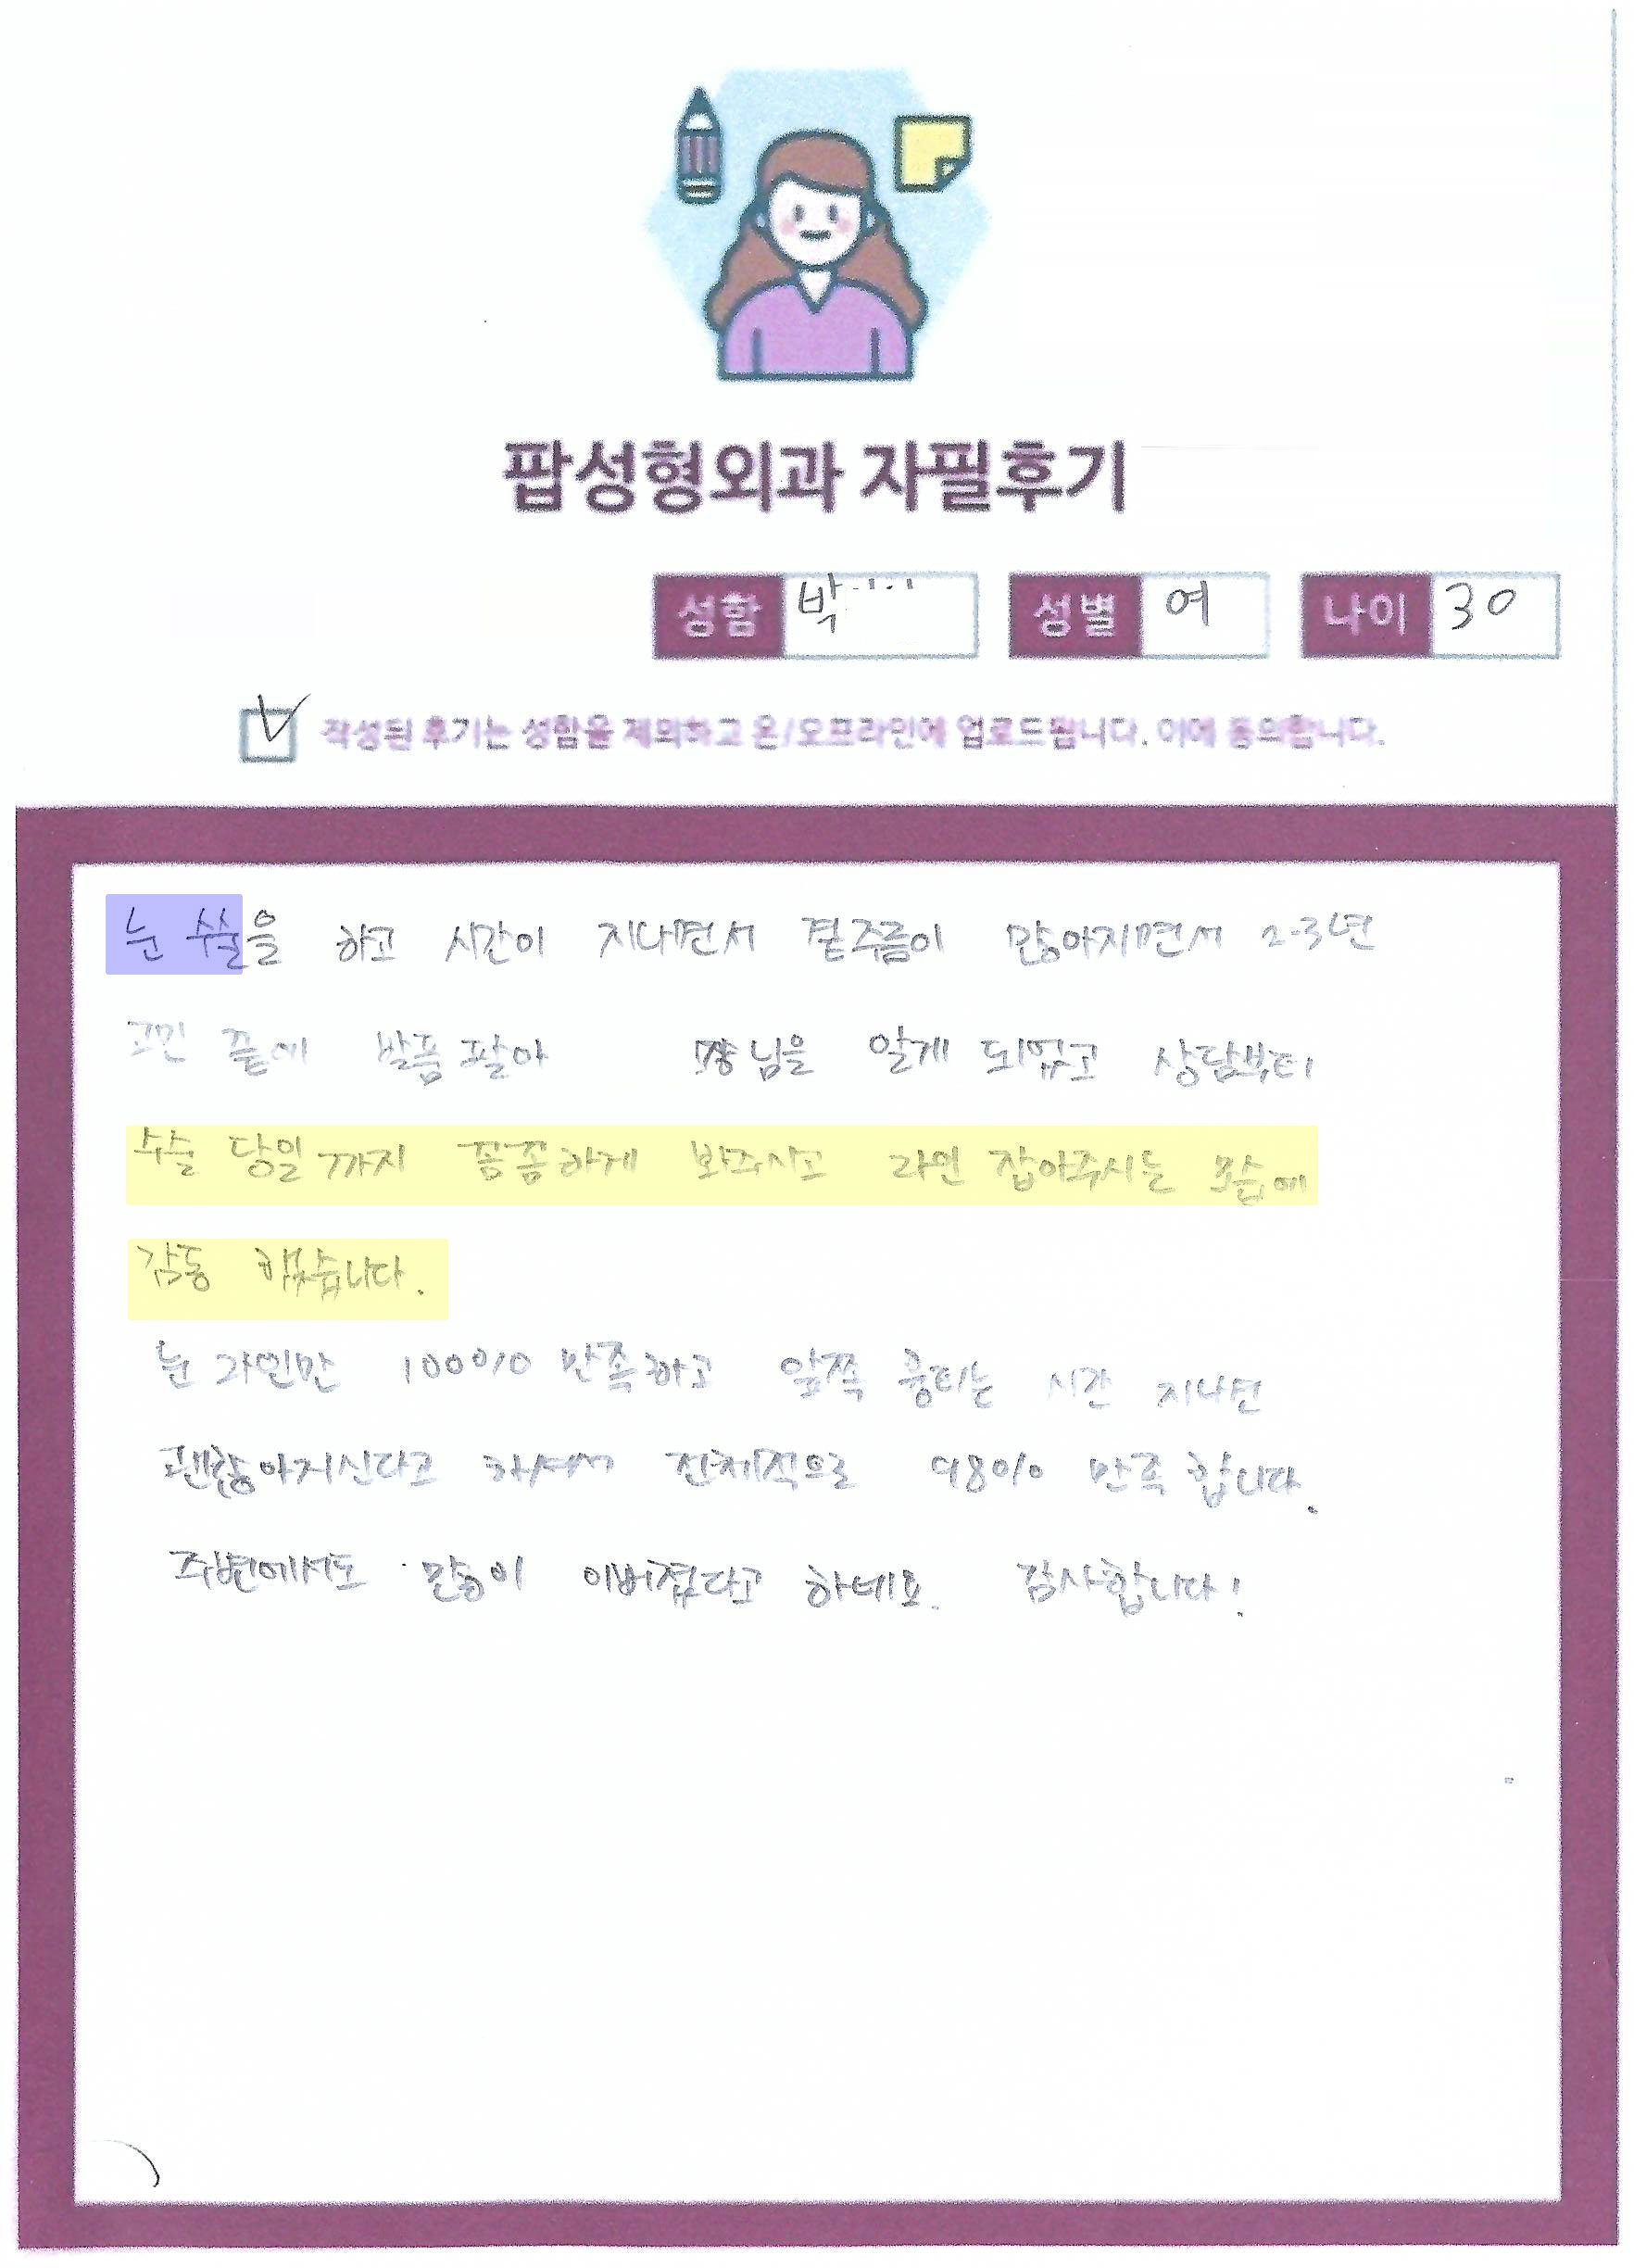 팝성형외과 자필후기
성함 박 성별 여 나이 30
작성된 후기는 성함을 제외하고 온/오프라인에 업로드됩니다. 이에 동의합니다.
눈 수술을 하고 시간이 지나면서 겉주름이 많아지면서 2-3년
고민 끝에 발품 팔아 님을 알게 되었고 상담부터
수술 당일까지 꼼꼼하게 봐주시고 라인 잡아주시는 모습에
감동 했습니다.
눈 라인만 100% 만족하고 앞쪽 흉터는 시간 지나면
괜찮아지신다고 하셔서 전체적으로 98% 만족 합니다.
주변에서도 많이 이뻐졌다고 하네요. 감사합니다!